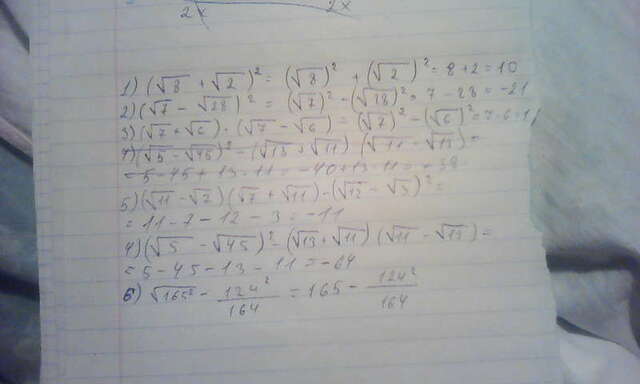 2x 2x
1) (√8 + √2)² = (√8)² + (√2)² = 8 + 2 = 10
2) (√7 - √28)² = (√7)² - (√28)² = 7 - 28 = -21
3) (√7 + √6) · (√7 - √6) = (√7)² - (√6)² = 7 - 6 = 1
4) (√5 - √45)² - (√13 + √11) (√11 - √13) =
= 5 - 45 + 13 - 11 = -40 + 13 - 11 = -38
5) (√11 - √7) (√7 + √11) - (√12 - √3)² =
= 11 - 7 - 12 - 3 = -11
4) (√5 - √45)² - (√13 + √11) (√11 - √13) =
= 5 - 45 - 13 - 11 = -64
6) √165² - 124²/164 = 165 - 124²/164